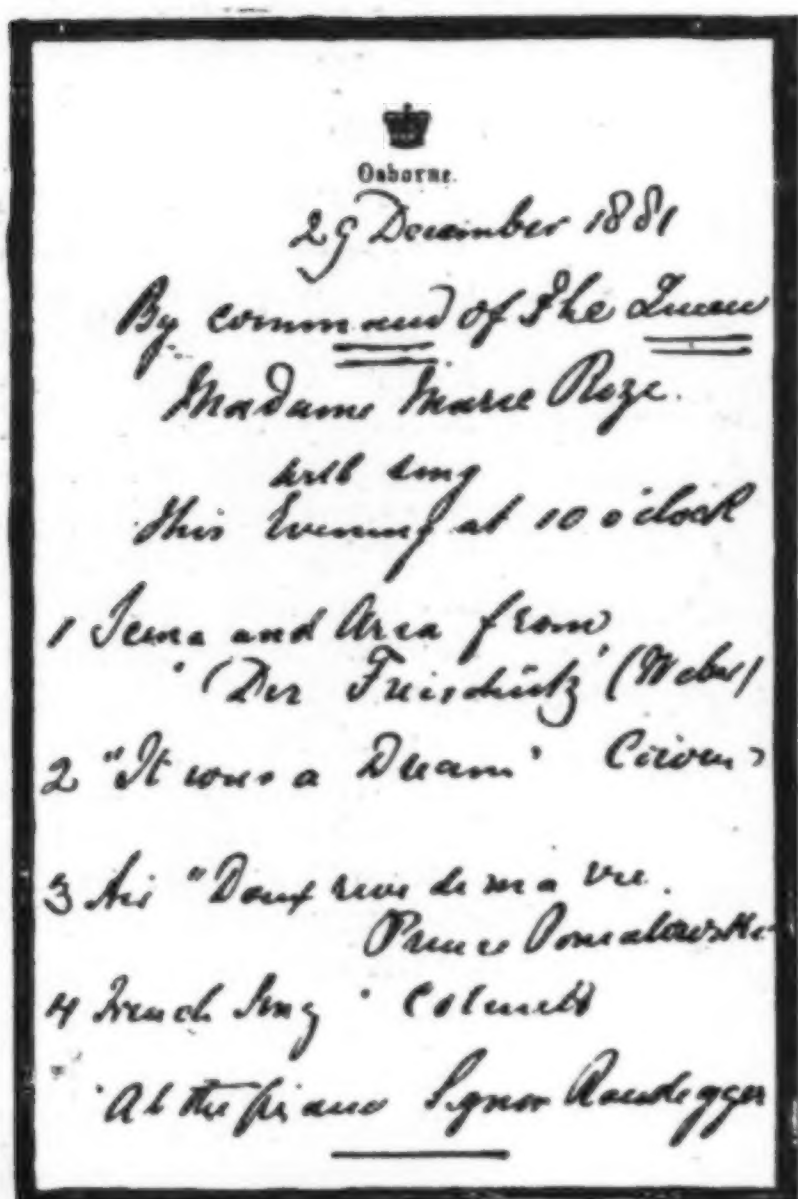 Osborne.
29 December 1881
By command of The Queen
Madame Marie Roze.
will sing
this Evening at 10 o'clock
1 Scena and Aria from
"Der Freischütz" (Weber)
2 "It was a Dream" Cowen
3 Air "Doux reve de ma vie.
Prince Poniatowski
4 French Song
At the piano Signor Randegger